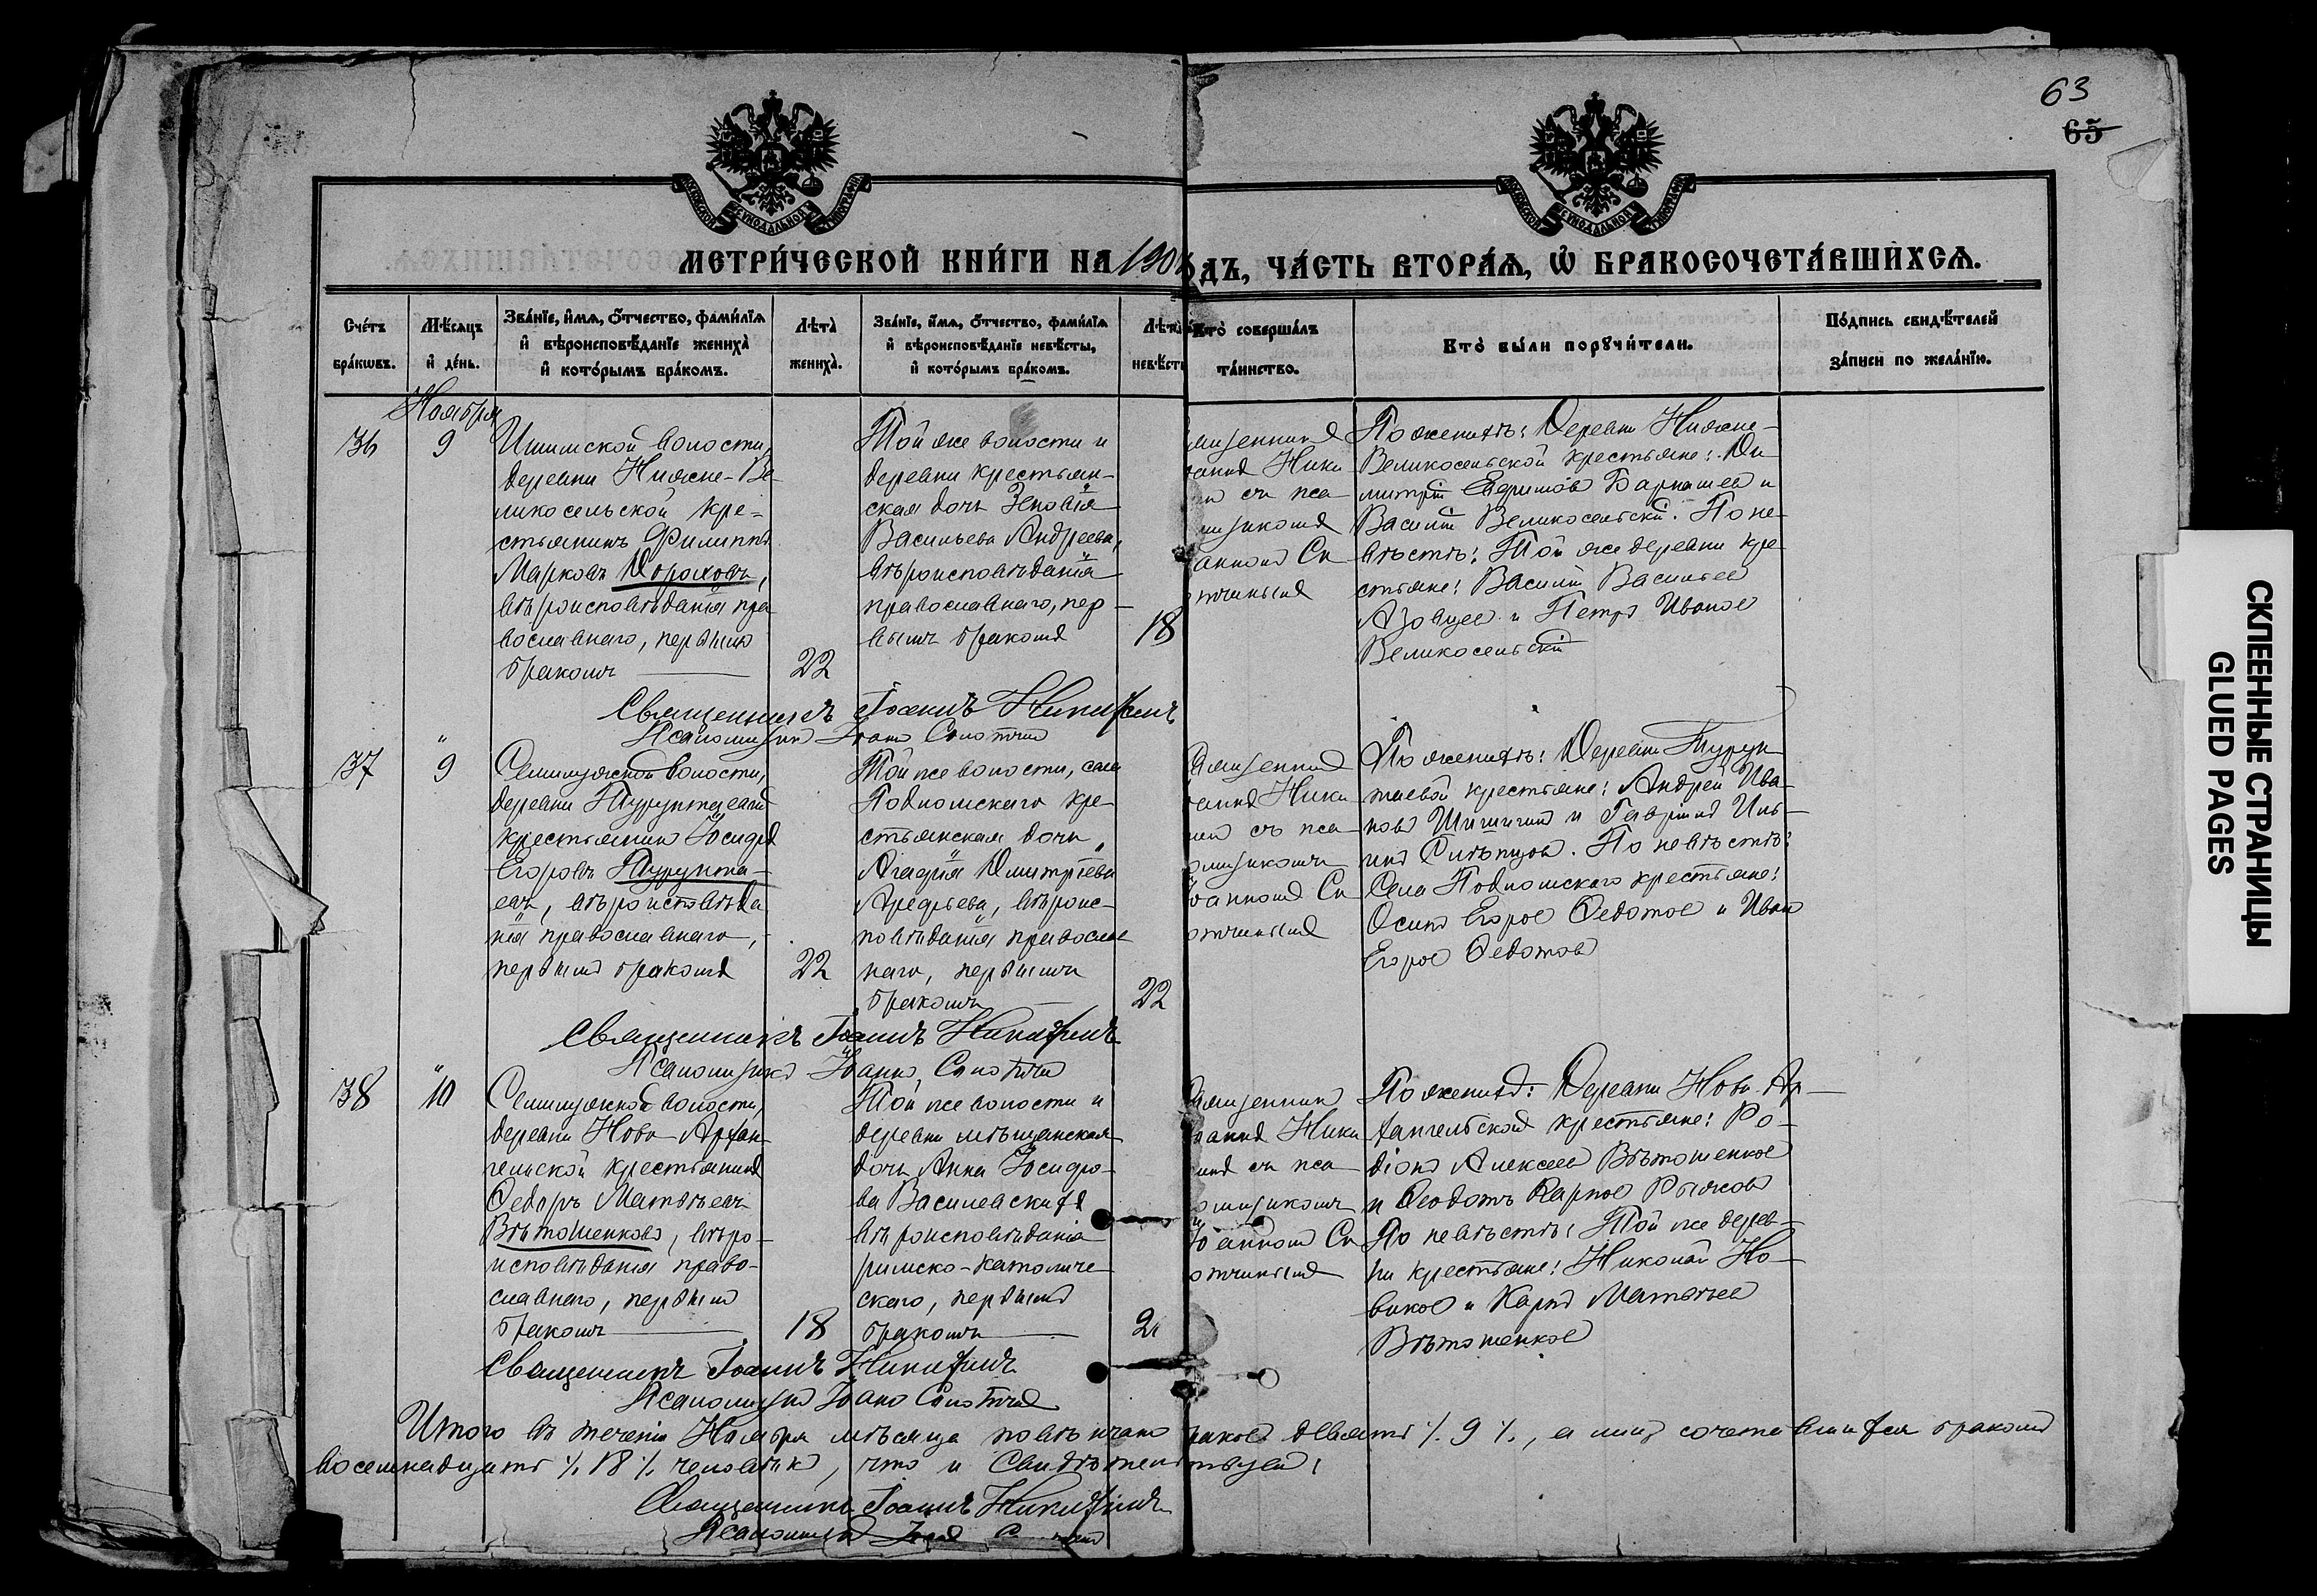 63
65
МЕТРИ́ЧЕСКОЙ КНИ́ГИ НА 190 ДЪ, ЧА́СТЬ ВТОРА́Я, Ѡ҆ БРАКОСОЧЕТА́ВШИХСѦ.
Сче́тъ бра́кωвъ.
Мѣ́сяцъ и҆ де́нь.
Зва́нїе, и҆́мѧ, ѻ҆́тчество, фами́лїѧ
и҆ вѣроисповѣ́данїе жениха̀
и҆ кото́рымъ бра́комъ.
Лѣта̀ жениха̀.
Зва́нїе, и҆́мѧ, ѻ҆́тчество, фами́лїѧ
и҆ вѣроисповѣ́данїе невѣ́сты,
и҆ кото́рымъ бра́комъ.
Лѣта̀ невѣ́ст
Кто̀ соверша́лъ
та́инство.
Кто̀ бы́ли порꙋчи́тели.
По́дпись свидѣ́телей
за́писи по жела́нїю.
Ноября
36
9
Ишимской волости,
деревни Нижне-Ве-
ликосельской кре-
стьянинъ Филиппъ
Марковъ Дороховъ,
вѣроисповѣданія пра
вославнаго, первымъ
бракомъ
22
Той же волости и
деревни крестьян-
ская дочь Зиновія
Васильева Андреева,
вѣроисповѣданія
православнаго, пер-
вымъ бракомъ
18
ященникъ
оаннъ Ники
съ пса-
ломщикомъ
анномъ Сп
отчинымъ
По женихѣ: Деревни Нижне-
Великосельской крестьяне: Ди
митрій Ефимовъ Барнашев и
Василій Великосельскій. По не-
вѣстѣ: Той же деревни кре
стьяне: Василій Васильев
Азовцев и Петръ Иванов
Великосельскій
Священникъ Іоаннъ Никифинъ
Псаломщикъ Іоаннъ Спотчин
37
9
Семилужской волости,
деревни Турунтаевой
крестьянинъ Іосифъ
Егоровъ Турунта-
евъ, вѣроисповѣда
нія православнаго,
первымъ бракомъ
22
Той же волости, села
Подломскаго кре-
стьянская дочь
Агафія Димитріева
Арефьева, вѣроис-
повѣданія православ
наго, первымъ
бракомъ
22
ященникъ
оаннъ Ники
съ пса-
омщикомъ
оанномъ Сп
отчинымъ
По женихѣ: Деревни Турун
таевой крестьяне: Андрей Ива-
новъ Шишигинъ и Гавріилъ Иль-
инъ Слѣпцовъ. По невѣстѣ:
Села Подломскаго крестьяне:
Осипъ Егоров Федотов и Иван
Егоров Федотовъ
Священникъ Іоаннъ Никифинъ
Псаломщикъ Іоаннъ Спотчин
38
10
Семилужской волости,
деревни Ново-Архан-
гельской крестьянинъ
Федоръ Матвѣевъ
Вѣтошенковъ, вѣро-
исповѣданія право-
славнаго, первымъ
бракомъ
18
Той же волости и
деревни мѣщанская
дочь Анна Іосифо-
ва Василевскихъ
вѣроисповѣданія
римско-католиче
скаго, первымъ
бракомъ
2
ященникъ
оаннъ Ники
съ пса-
омщикомъ
оанномъ Сп
отчинымъ
По женихѣ: Деревни Ново-Ар-
хангельской крестьяне: Ро-
діонъ Алексеев Вѣтошенков
и Феодотъ Карпов Рыжовъ
По невѣстѣ: Той же дерев-
ни крестьяне: Николай Но-
виков и Карпъ Матвѣев
Вѣтошенков
Священникъ Іоаннъ Никифинъ
Псаломщикъ Іоаннъ Спотчин
Итого въ теченіи Ноября мѣсяца повѣнчано браков девять ٪ 9 ٪, а лиц сочетавшихся бракомъ
восемнадцать ٪ 18 ٪ человѣкъ, что и свидѣтельствуем:
Священникъ Іоаннъ Никифинъ
Псаломщикъ Іоаннъ
СКЛЕЕННЫЕ СТРАНИЦЫ
GLUED PAGES